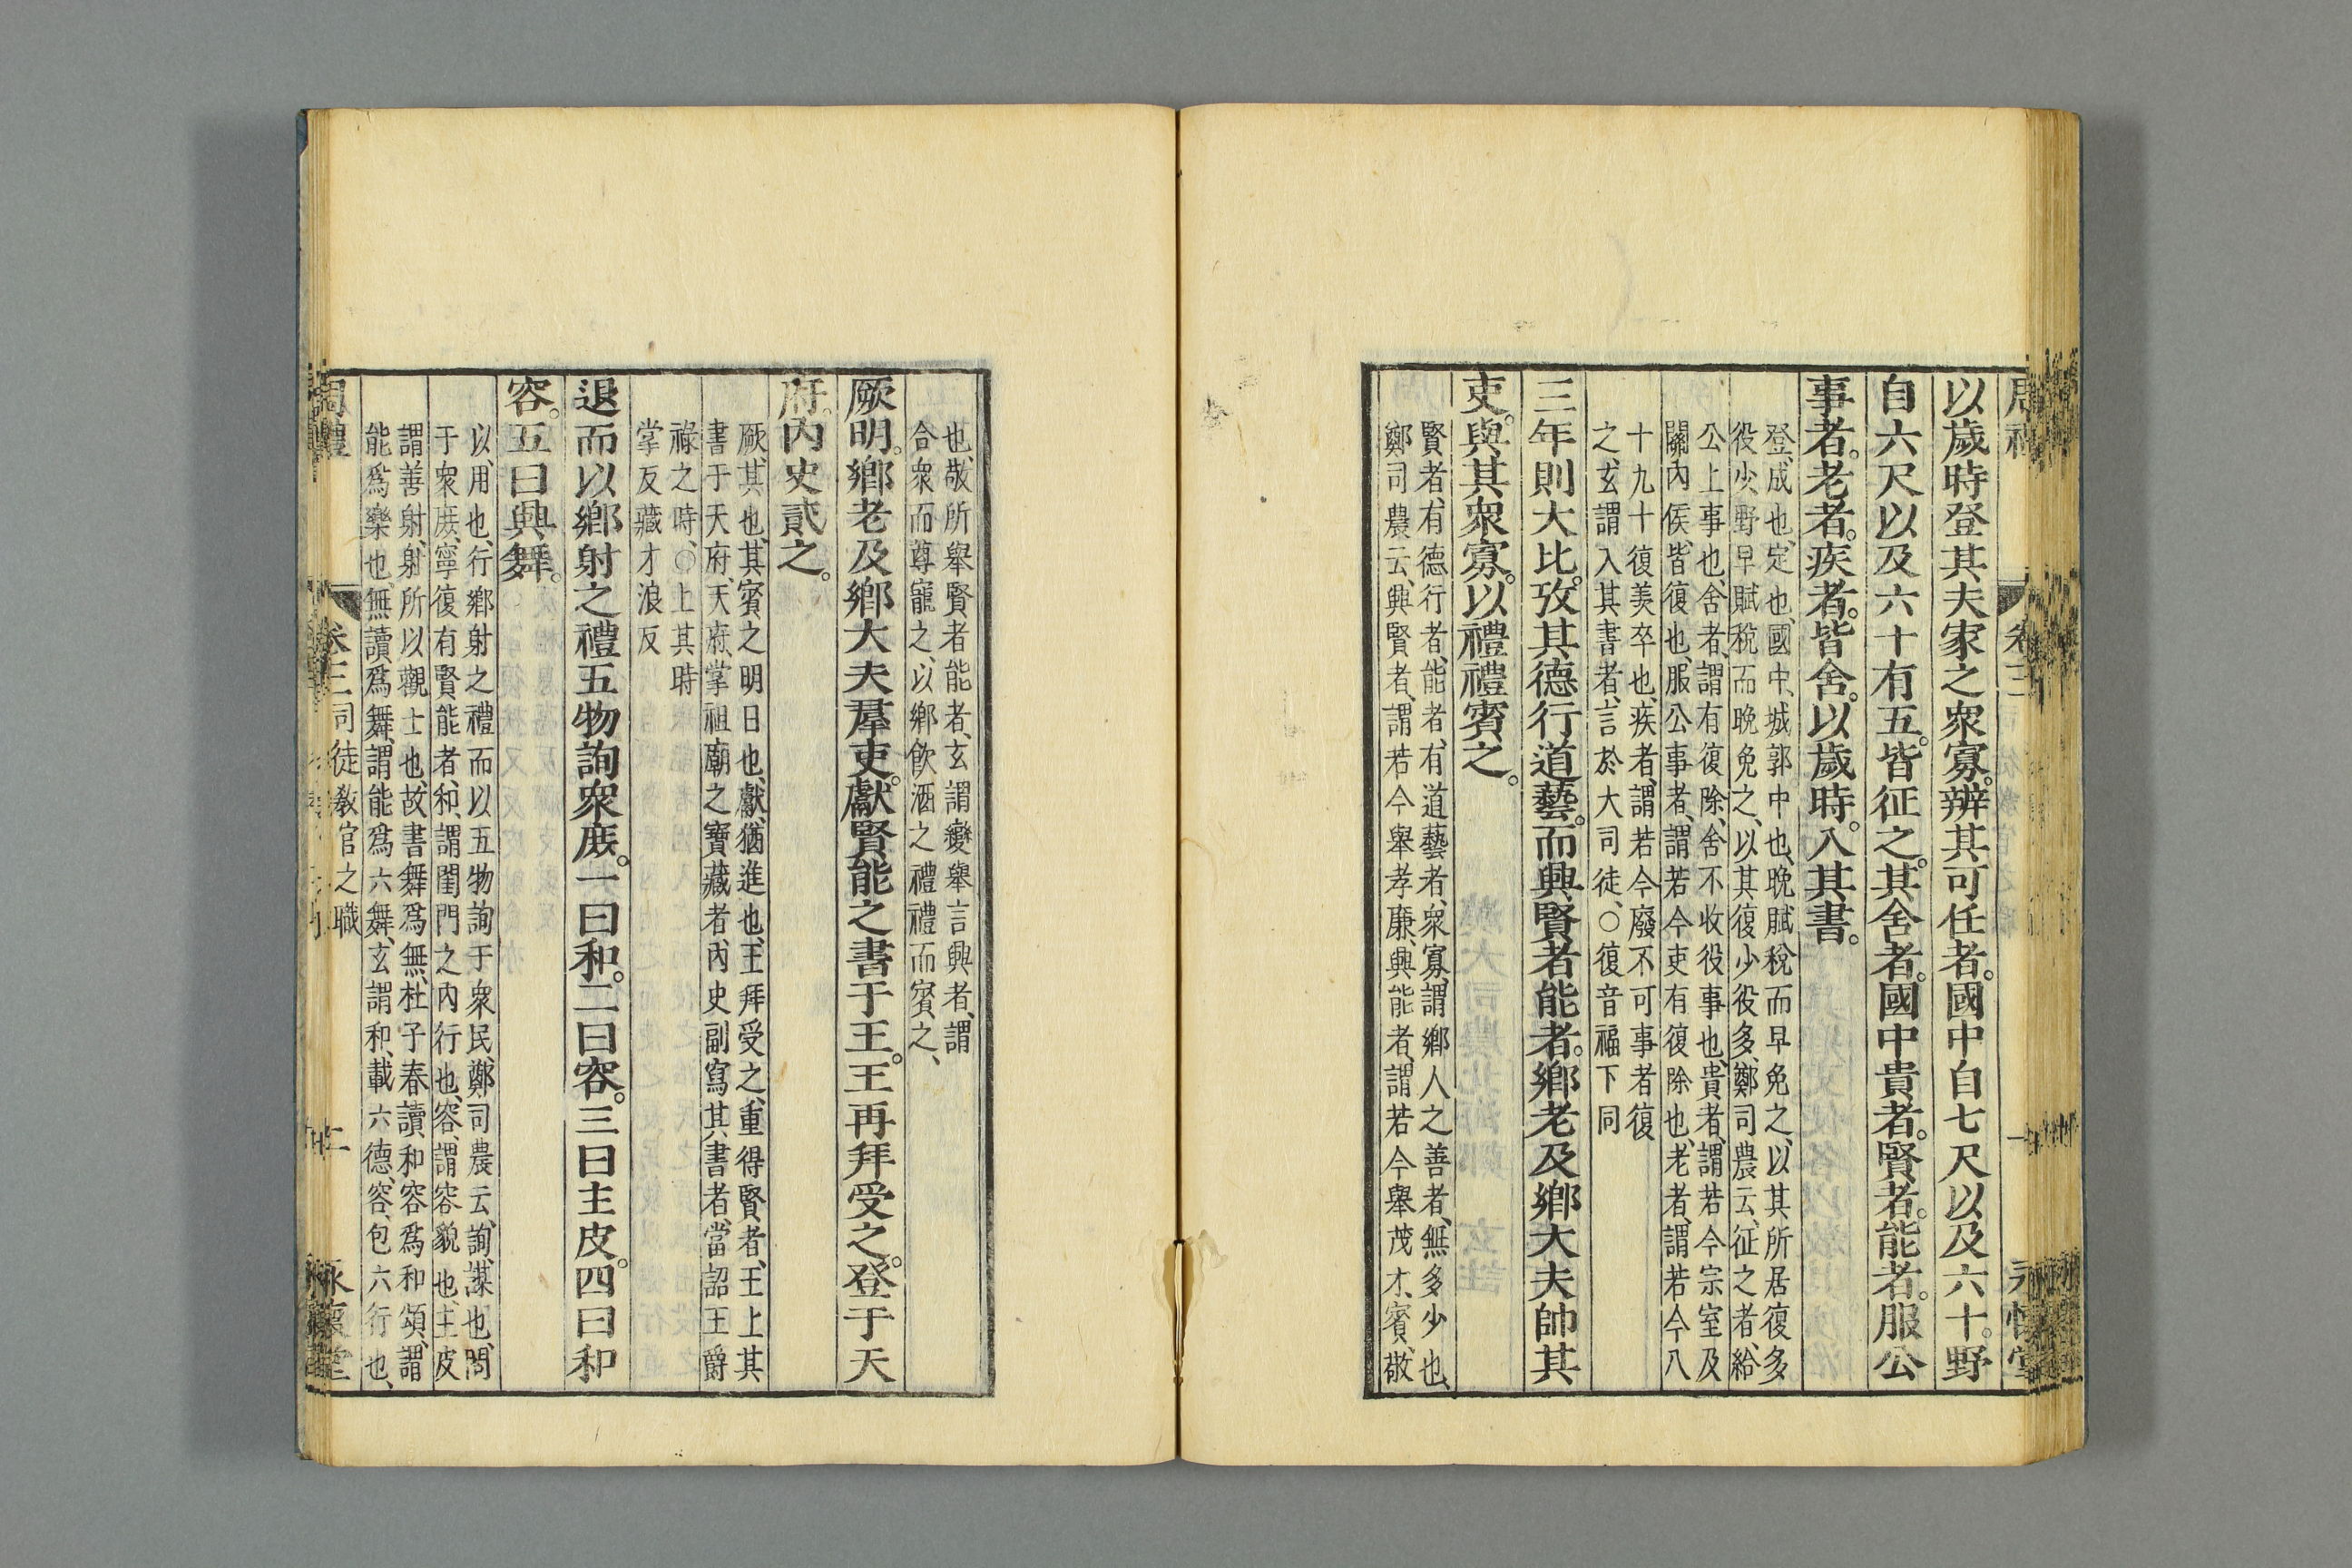 周禮
卷三
永懷堂
以歲時登其夫家之衆寡。辨其可任者。國中自七尺以及六十。野
自六尺以及六十有五。皆征之。其舍者。國中貴者。賢者。能者。服公
事者。老者。疾者。皆舍。以歲時。入其書。
登、成也、定也、國中、城郭中也、晚賦稅而早免之、以其所居復多
役少、野早賦稅而晚免之、以其復少役多、鄭司農云、征之者、給
公上事也、舍者、謂有復除、舍不收役事也、貴者、謂若今宗室及
關內侯、皆復也、服公事者、謂若今吏有復除也、老者、謂若今八
十九十復羡卒也、疾者、謂若今廢不可事者復
之、玄謂入其書者、言於大司徒、○復音福下同
三年則大比。攷其德行道藝。而興賢者能者。鄉老及鄉大夫帥其
吏。與其衆寡。以禮禮賓之。
賢者、有德行者、能者、有道藝者、衆寡、謂鄉人之善者、無多少也、
鄭司農云、興賢者、謂若今舉孝廉、興能者、謂若今舉茂才、賓、敬
也、敬所舉賢者能者、玄謂變舉言興者、謂
合衆而尊寵之、以鄉飲酒之禮禮而賓之、
厥明。鄉老及鄉大夫羣吏。獻賢能之書于王。王再拜受之。登于天
府。內史貳之。
厥、其也、其賓之明日也、獻、猶進也、王拜受之、重得賢者、王上其
書于天府、天府、掌祖廟之寶藏者、內史副寫其書者、當詔王爵
祿之時、○上其時
掌反藏才浪反
退而以鄉射之禮五物詢衆庶。一曰和。二曰容。三曰主皮。四曰和
容。五曰興舞。
以、用也、行鄉射之禮而以五物詢于衆民、鄭司農云、詢、謀也、問
于衆庶、寧復有賢能者、和、謂閨門之內行也、容、謂容貌也、主皮
謂善射、射所以觀士也、故書舞爲無、杜子春讀和容爲和頌、謂
能爲樂也、無讀爲舞、謂能爲六舞、玄謂和、載六德、容、包六行也、
周禮
卷三司徒敎官之職
永懷堂